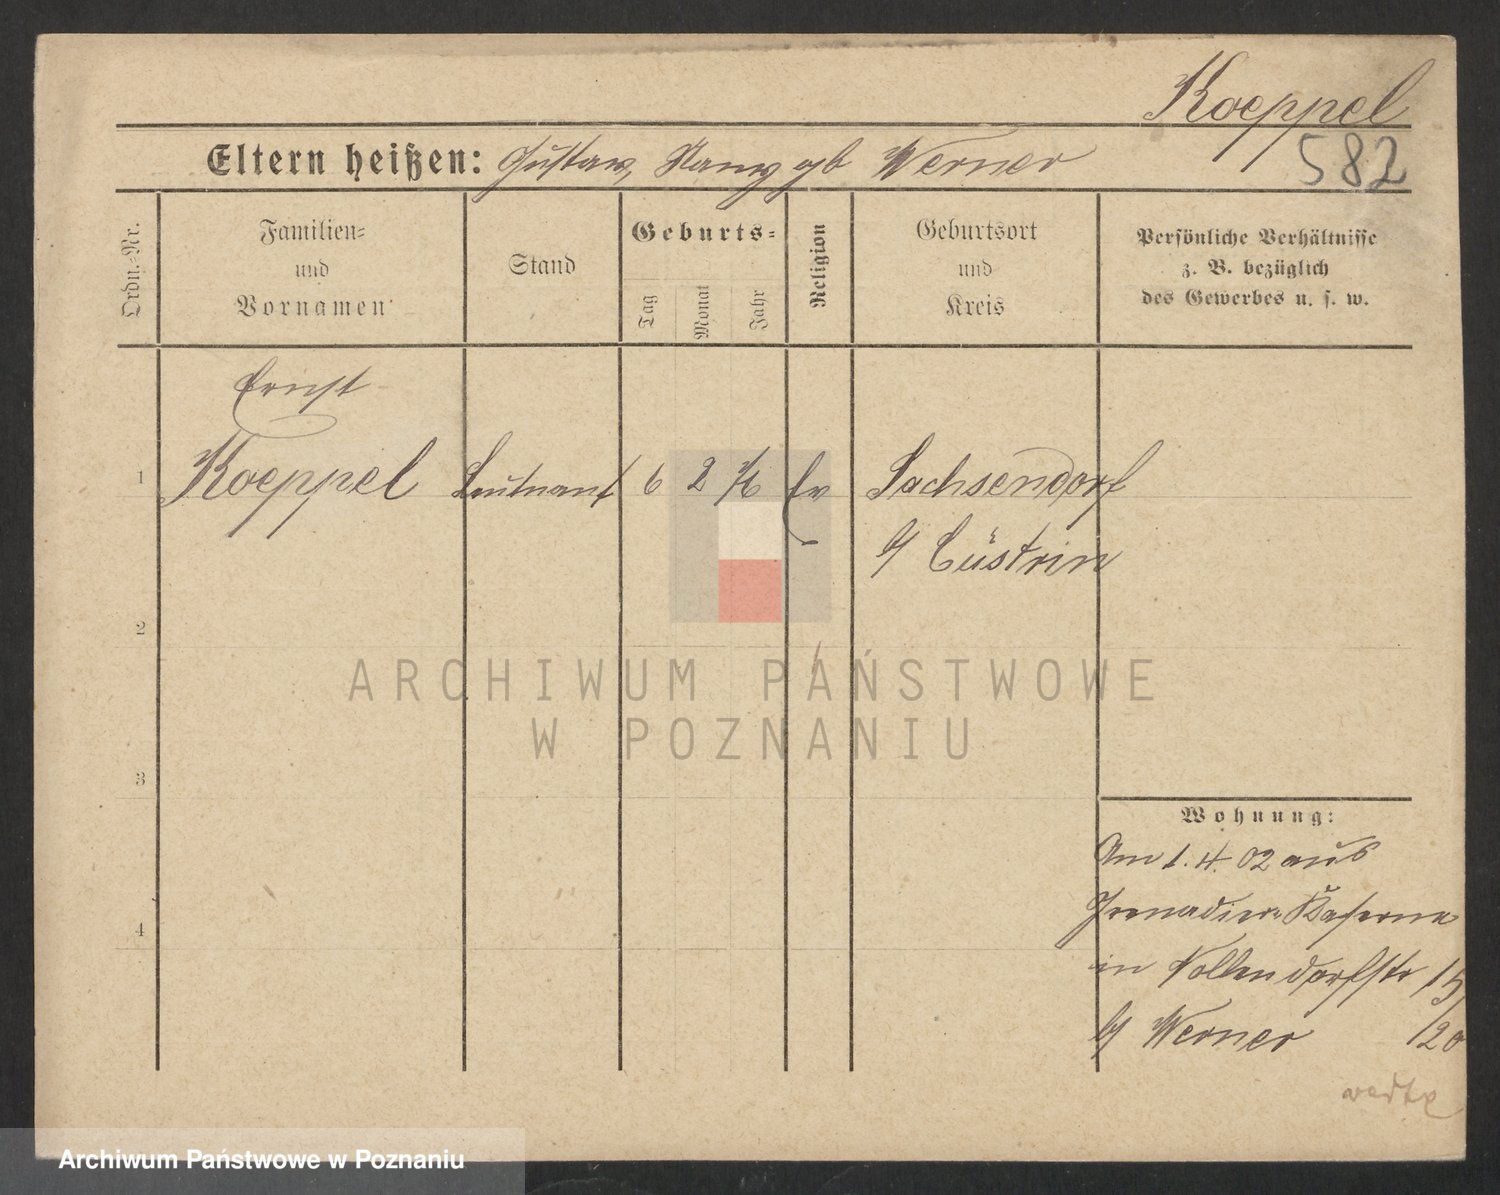 Koeppel
582
Eltern heißen: Gustav, Nanny gb Werner
Ordn.-Nr.
Familien-
und
Vornamen
Stand
Geburts-
Tag
Monat
Jahr
Religion
Geburtsort
und
Kreis
Persönliche Verhältnisse
z. B. bezüglich
des Gewerbes u. s. w.
Ernst
1 Koeppel Leutnant 6 2 76 Ev Sachsendorf
b/ Cüstrin
2
3
4
ARCHIWUM PAŃSTWOWE
W POZNANIU
Wohnung:
Am 1. 4. 02 aus
Grenadier-Kaserne
in Nollendorfstr 15/
b/ Werner /20
Archiwum Państwowe w Poznaniu